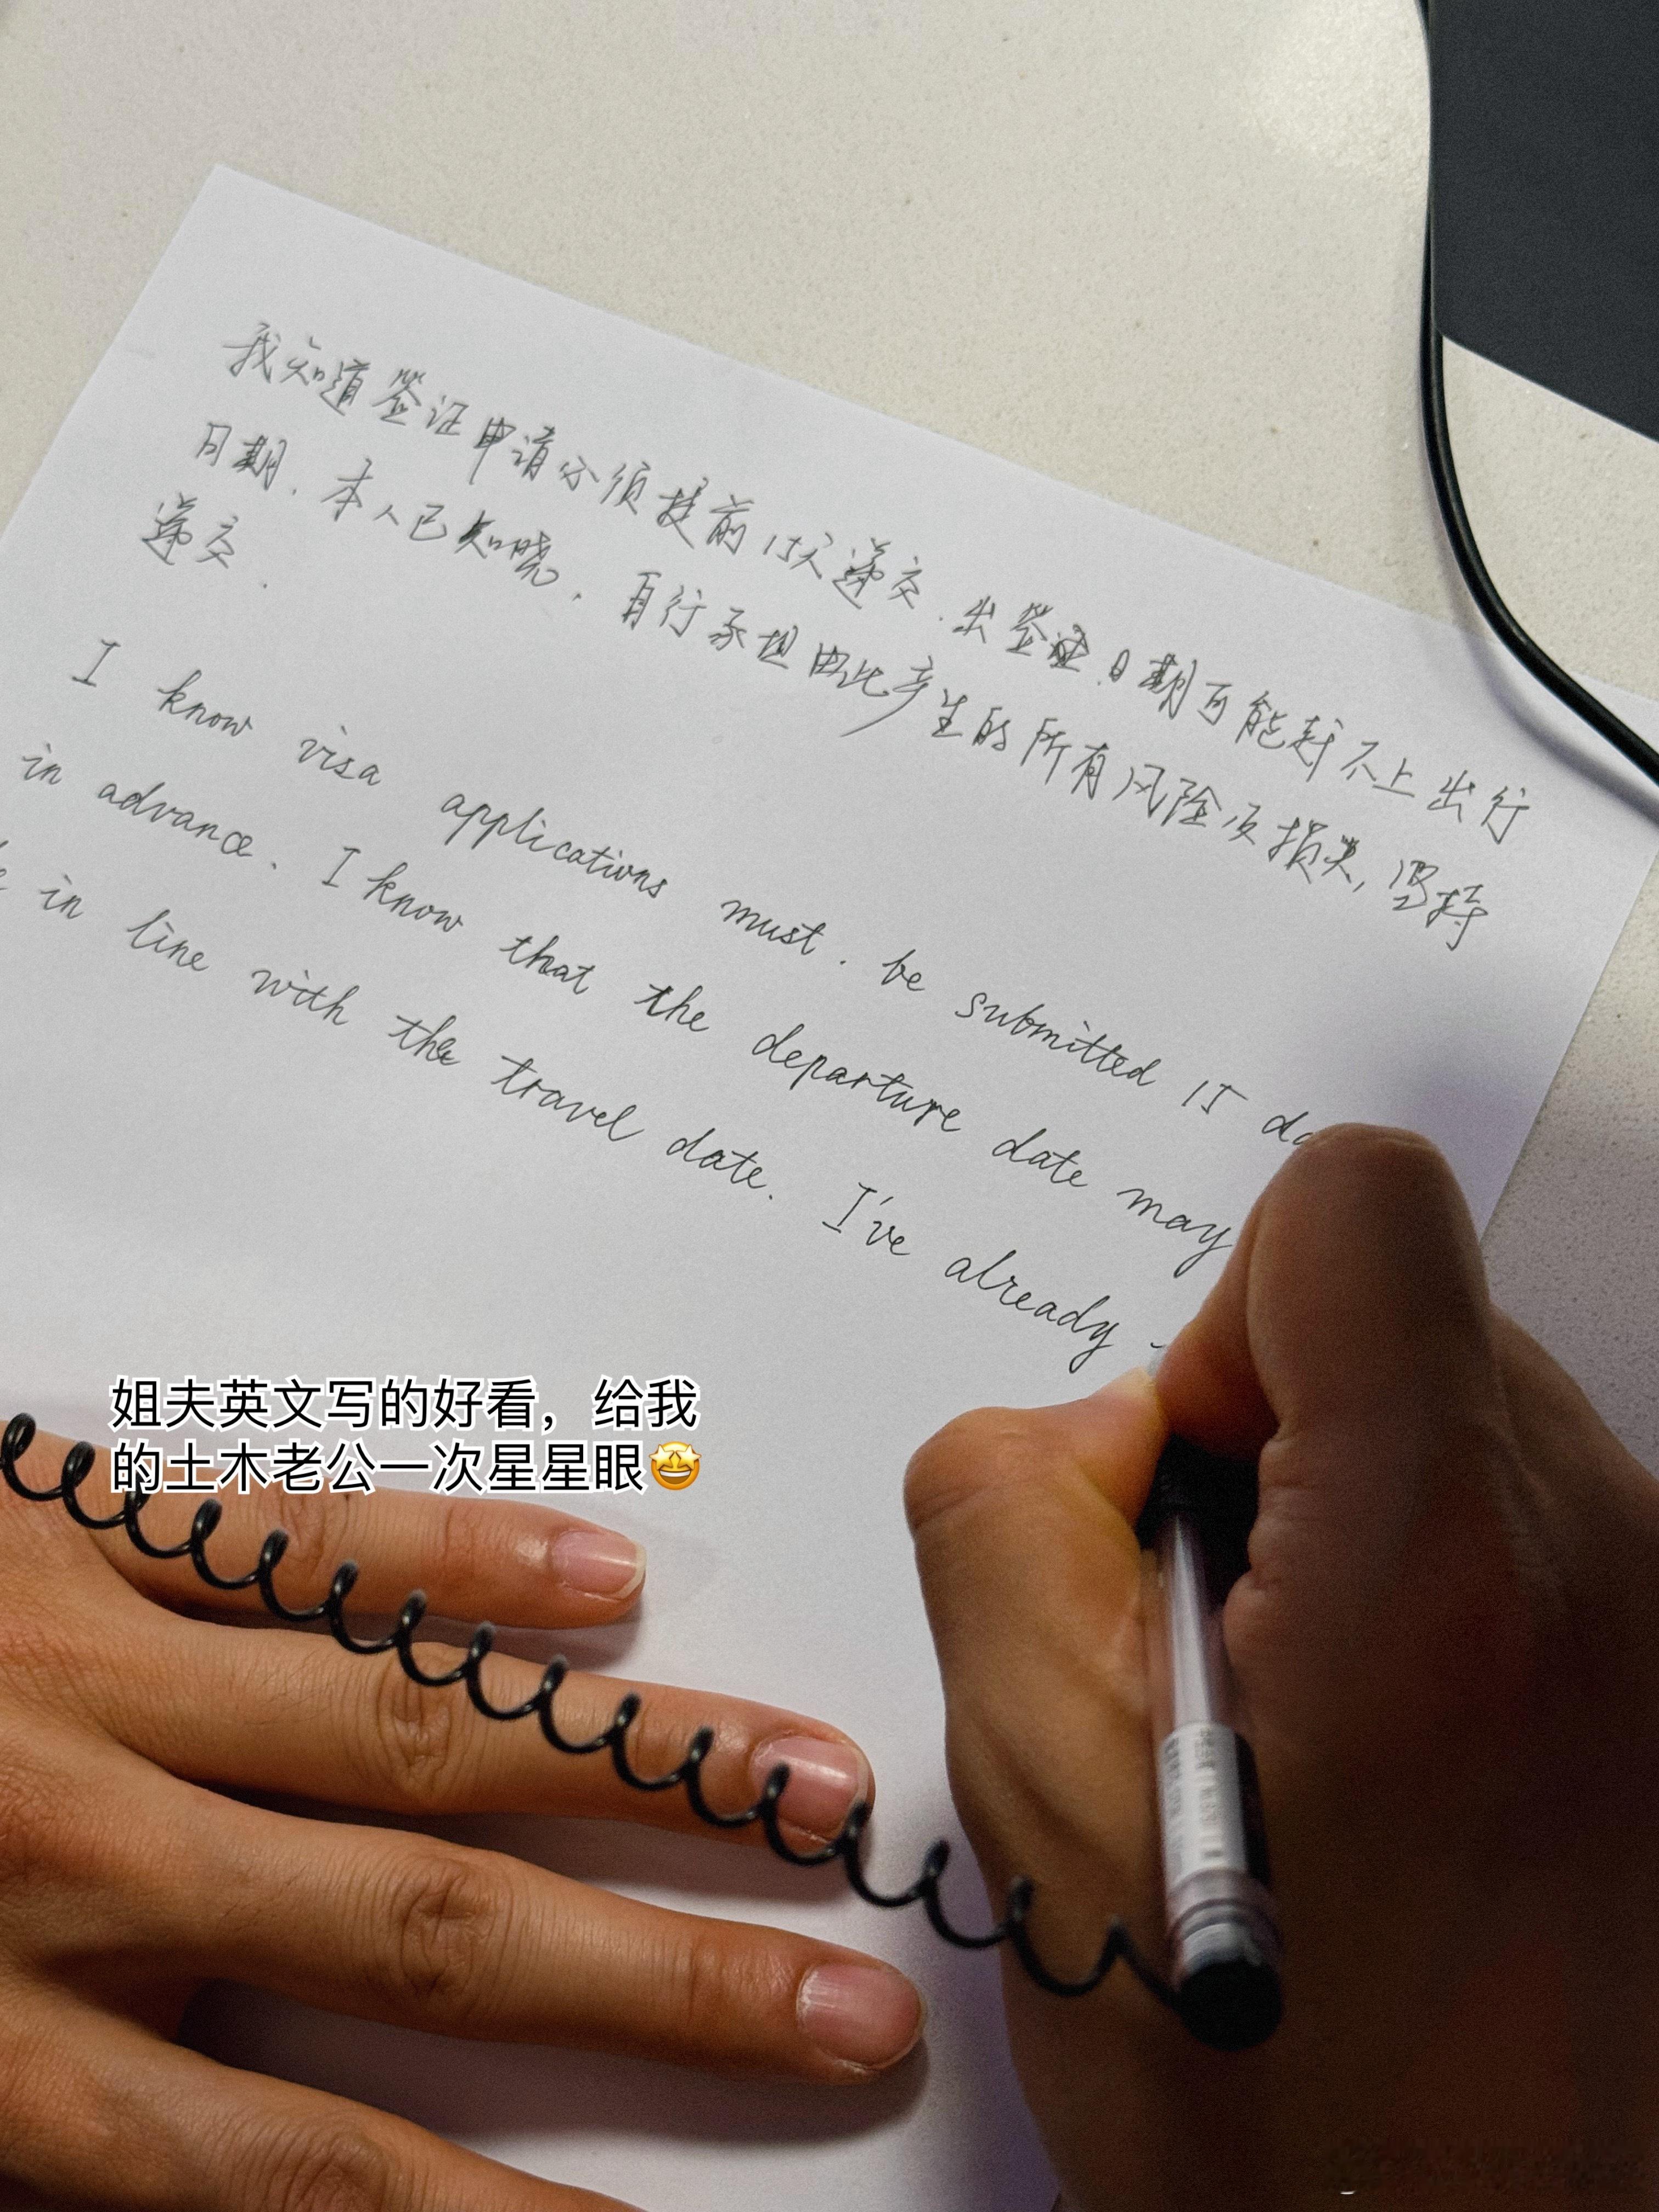 我知道签证申请必须提前15天递交.出签证日期可能赶不上出行
日期.本人已知晓.自行承担由此产生的所有风险及损失,坚持
递交.
I know visa applications must. be submitted 15
in advance. I know that the departure date may
in line with the travel date. I've already
姐夫英文写的好看，给我
的土木老公一次星星眼🤩